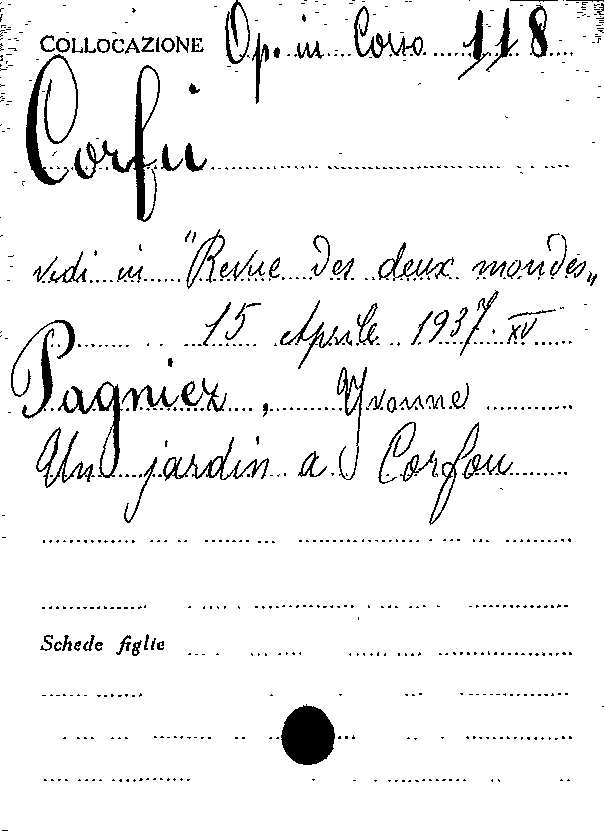 COLLOCAZIONE Op. in Corso 118
Corfù
vedi in "Revue des deux mondes„
15 Aprile 1937. XV
Pagniez, Yvonne
Un jardin a Corfou
Schede figlie